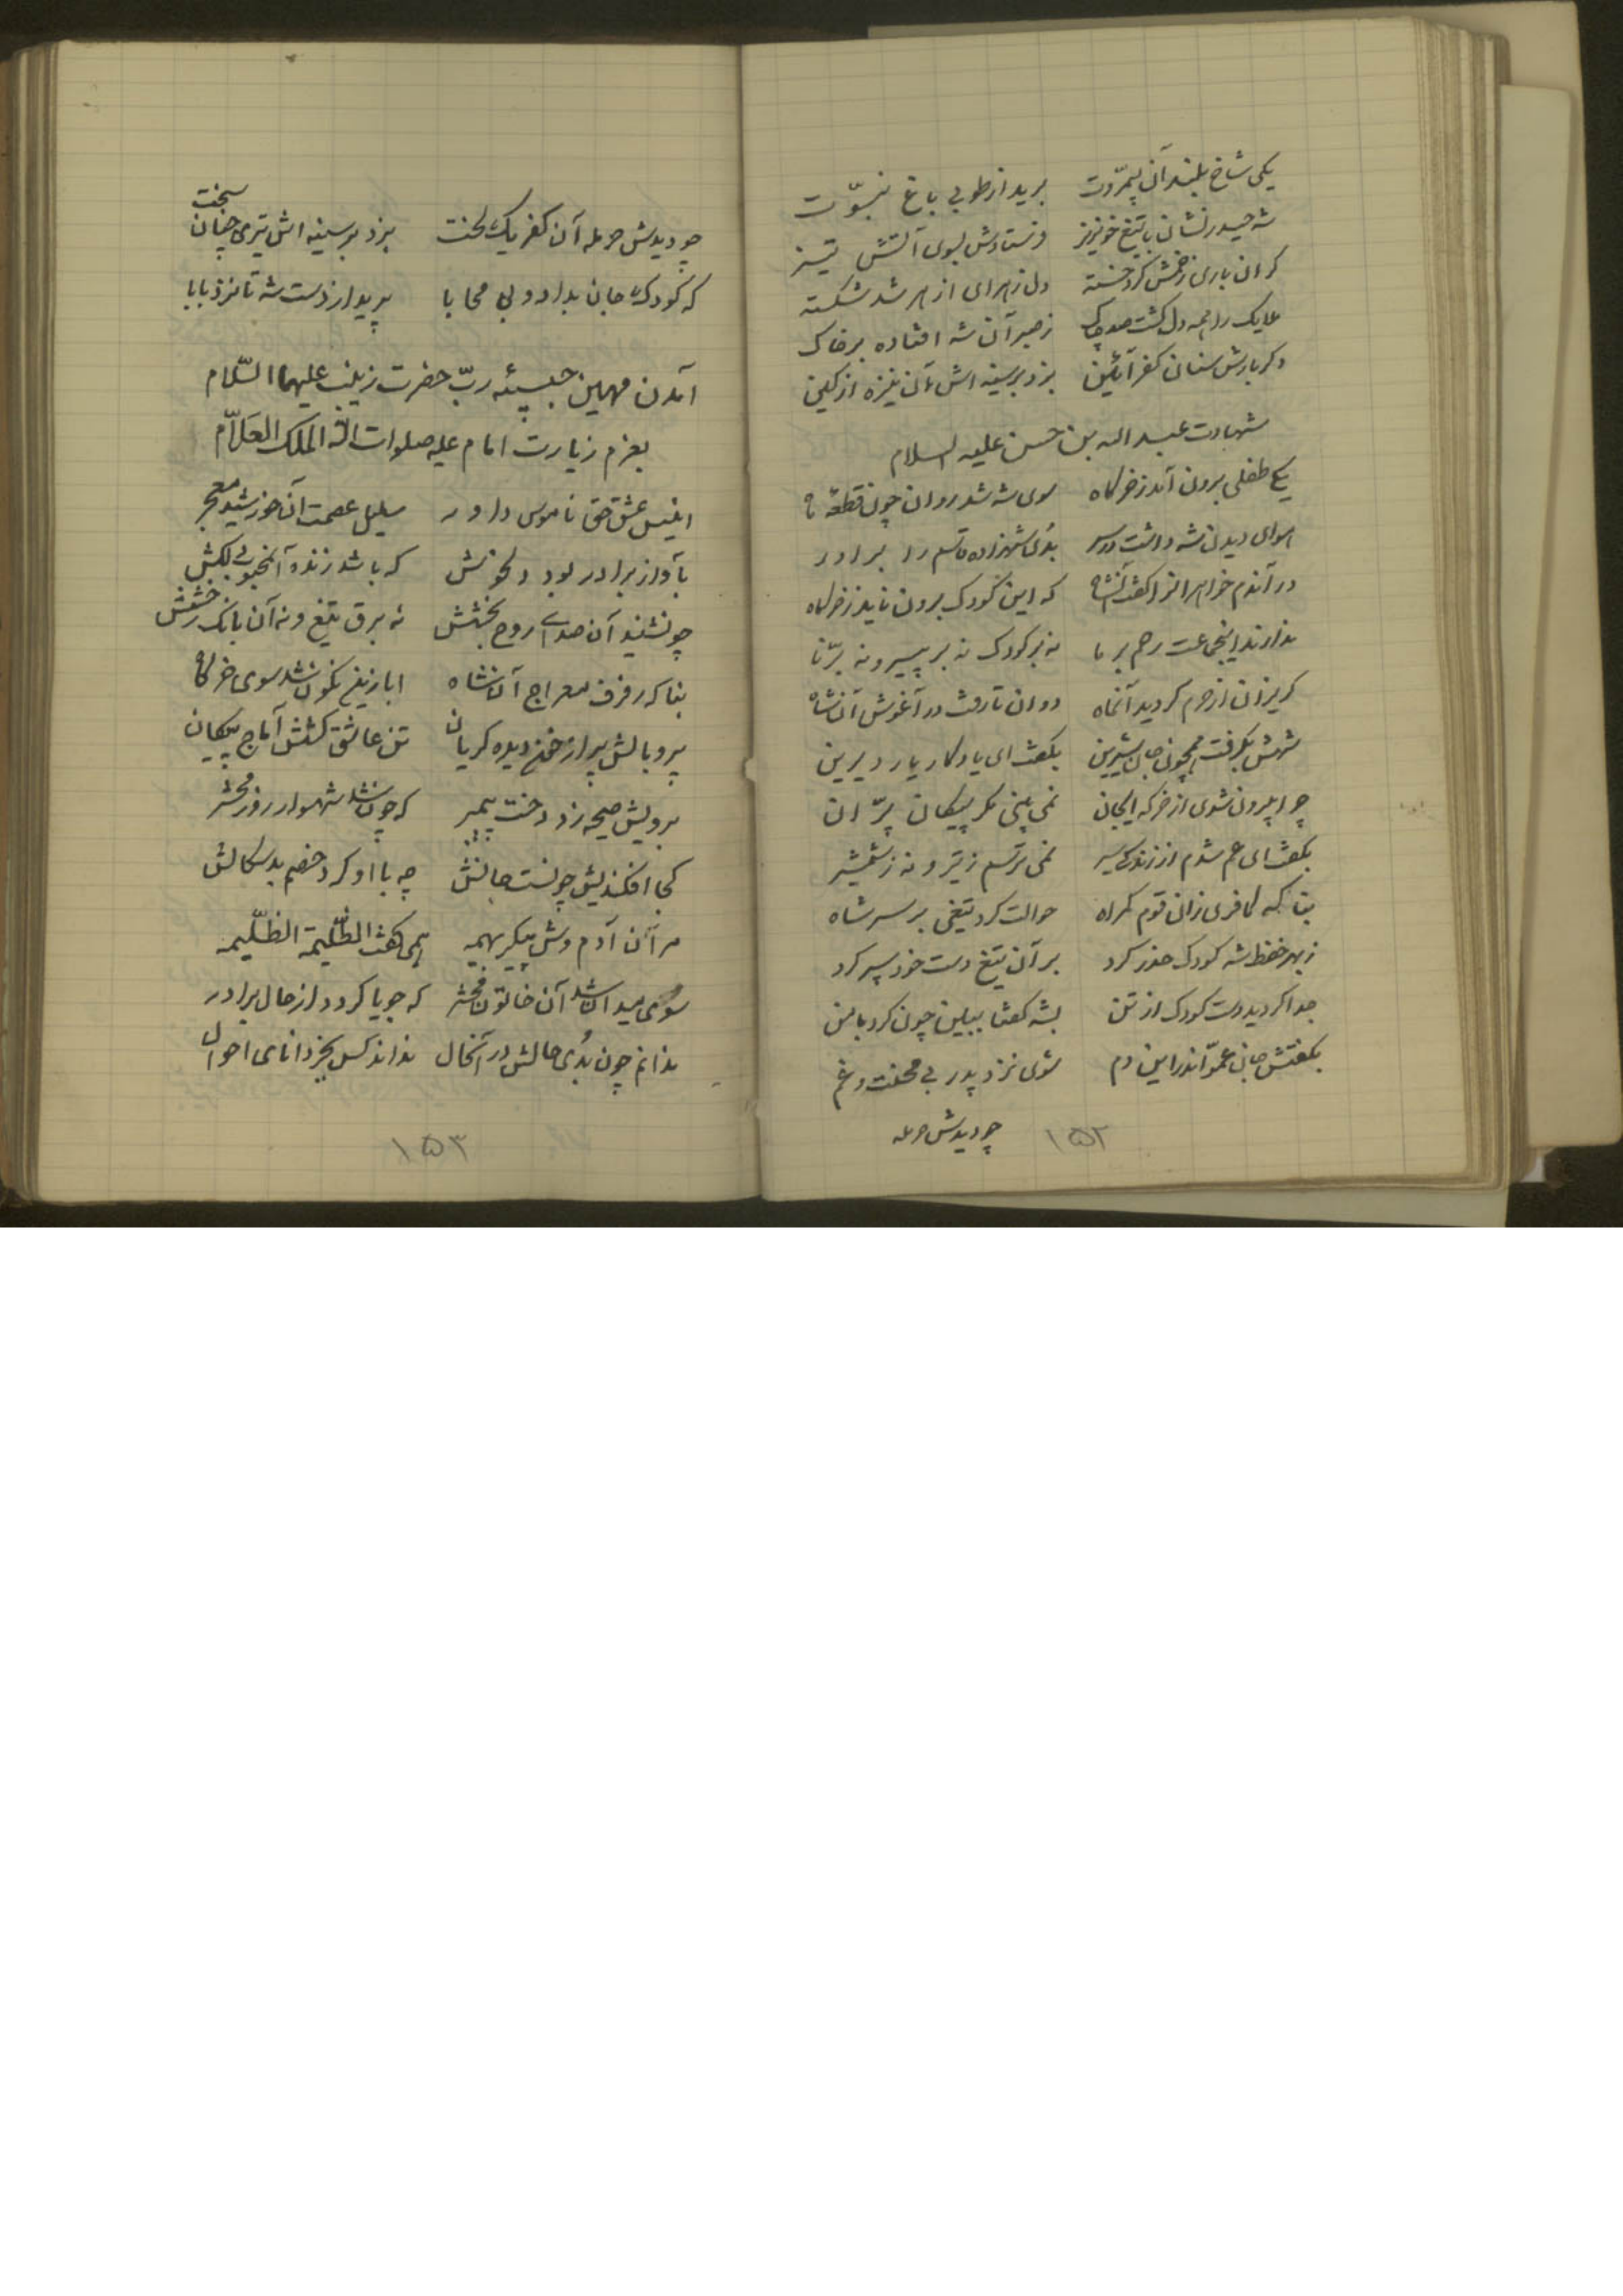 یکی شاخ بلند آن بیمروّت برید از طوبی باغ نبوّت
شه حیدر نشان با تیغ خونریز فرستادش بسوی آتش تیز
گران باری زخمش کرد خسته دل زهرای ازهر شد شکسته
ملایک را همه دل گشت صد چاک ز صبر آن شه افتاده بر خاک
دگر بارش سنان کفر آئین بزد بر سینه اش آن نیزه از کین
شهادت عبد الله بن حسن علیه السلام
یکی طفلی برون آمد ز خرگاه سوی شه شد روان چون قطعهٔ ماه
هوای دیدن شه داشت در سر بُدی شهزاده قاسم را برادر
در آندم خواهر انرا گفت آنشاه که این کودک برون ناید ز خرگاه
ندارند این جماعت رحم بر ما نه بر کودک نه بر پیر و نه برنا
گریزان از حرم گردید آنماه دوان تا رفت در آغوش آنشاه
شهش بگرفت همچون جان شیرین بگفت ای یادگار یار دیرین
چرا بیرون شدی از خرگه ایجان نمی بینی مگر پیکان پرّان
بگفت ای عم شدم از زندگی سیر نمی ترسم ز تیر و نه ز شمشیر
بناگه کافری زان قوم گمراه حوالت کرد تیغی بر سر شاه
ز بهر حفظ شه کودک حذر کرد بر آن تیغ دست خود سپر کرد
جدا گردید دست کودک از تن بشه گفتا ببین چون کرد با من
بگفتش جان عموّ اندر این دم شوی نزد پدر بی محنت و غم
چو دیدش حرمله
۱۵۲
چو دیدش حرمله آن کفر یک لخت بزد بر سینه اش تیری چنان سخت
که کودک جان بداد و بی محابا پرید از دست شه تا نزد بابا
آمدن مهین حبیبهٔ ربّ حضرت زینب علیها السّلام
بعزم زیارت امام علیه صلوات الله الملک العلاّم
انیس عشق حق ناموس داور سلیل عصمت آن خورشید معجر
بآواز برادر بود دلخوش که باشد زنده آنمحبوب لکش
چو نشنید آن صدای روح بخشش نه برق تیغ و نه آن بانگ رخشش
بناگه رفرف معراج آنشاه ابا زین نگون شد سوی خرگاه
پر و بالش پر از خون دیده گریان تن عاشق کشش آماج پیکان
برویش صیحه زد دخت پیمبر که چون شد شهسوار روز محشر
کجا افکندیش چونست حالش چه با او کرد خصم بد سگالش
مر آن آدم وش پیکر بهیمه همی گفت الظّلیمة الظّلیمه
سوی میدان شد آن خاتون محشر که جویا گردد از حال برادر
ندانم چون بُدی حالش در آنحال نداند کس بجز دانای احوال
۱۵۳